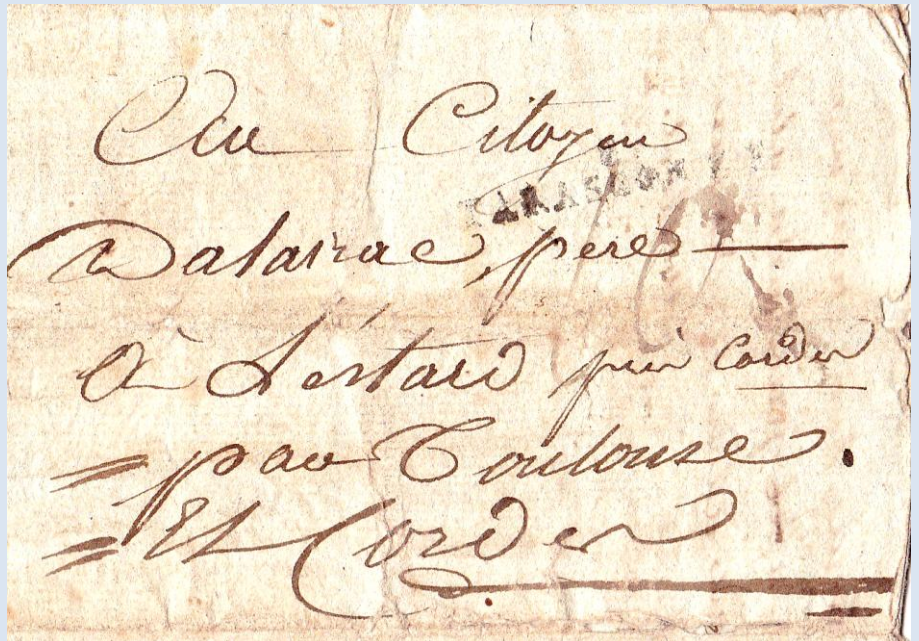 Au Citoyen
TARASCON
Dalairac, pere
à Léstard près Cordes
par Toulouse.
Et Cordes